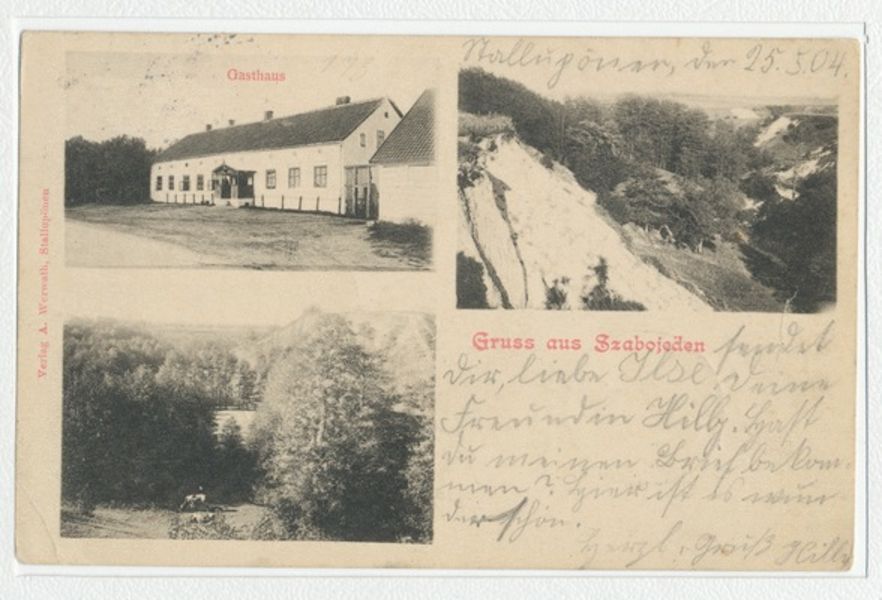 Stallupönen, den 25.5.04.
Gasthaus
Verlag A. Werwath, Stallupönen
Gruss aus Szabojeden sendet
Dir, liebe Ilse, Deine
Freundin Hilly. Hast
du meinen Brief bekom-
men? Hier ist es wun-
derschön.
Herzl. Gruß Hilly